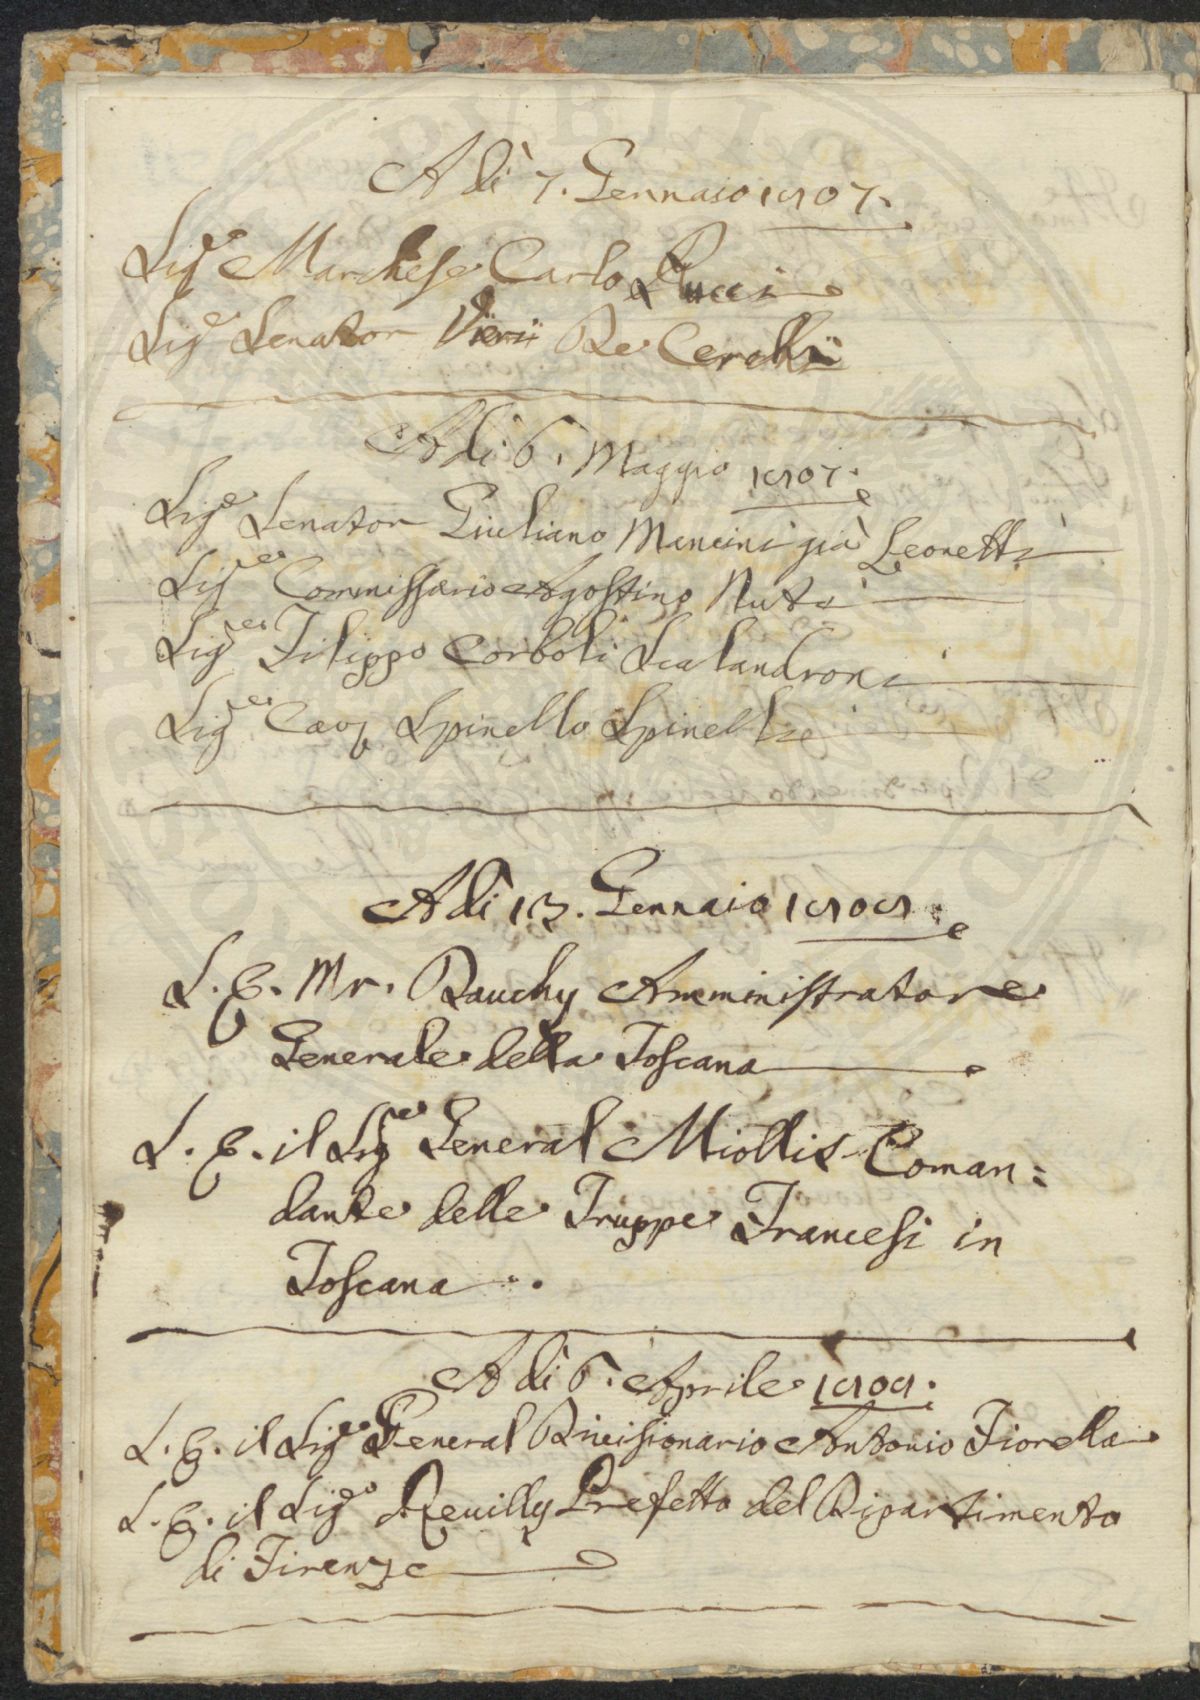 Adì 7. Gennaio 1807.
Sigre Marchese Carlo Pucci
Sigre Senator Vieri De Cerchi
Adì 6. Maggio 1807.
Sigre Senator Giuliano Mancini già Leonetti
Sigre Commissario Agostino Nuti
Sigre Filippo Corboli Scalandroni
Sigre Cavr Spinello Spinelli
Adì 13. Gennaio 1808.
S. E. Mr. Dauchy Amministratore
Generale della Toscana
S. E. il Sigre General Miollis Coman=
dante delle Truppe Francesi in
Toscana.
Adì 6. Aprile 1808.
S. E. il Sigre General Divisionario Antonio Fiorella
S. E. il Sigre Reuilly Prefetto del Dipartimento
di Firenze